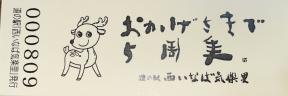 道の駅「西いなば気楽里」発行
000809
おかげさまで
5周年
道の駅 西いなば気楽里